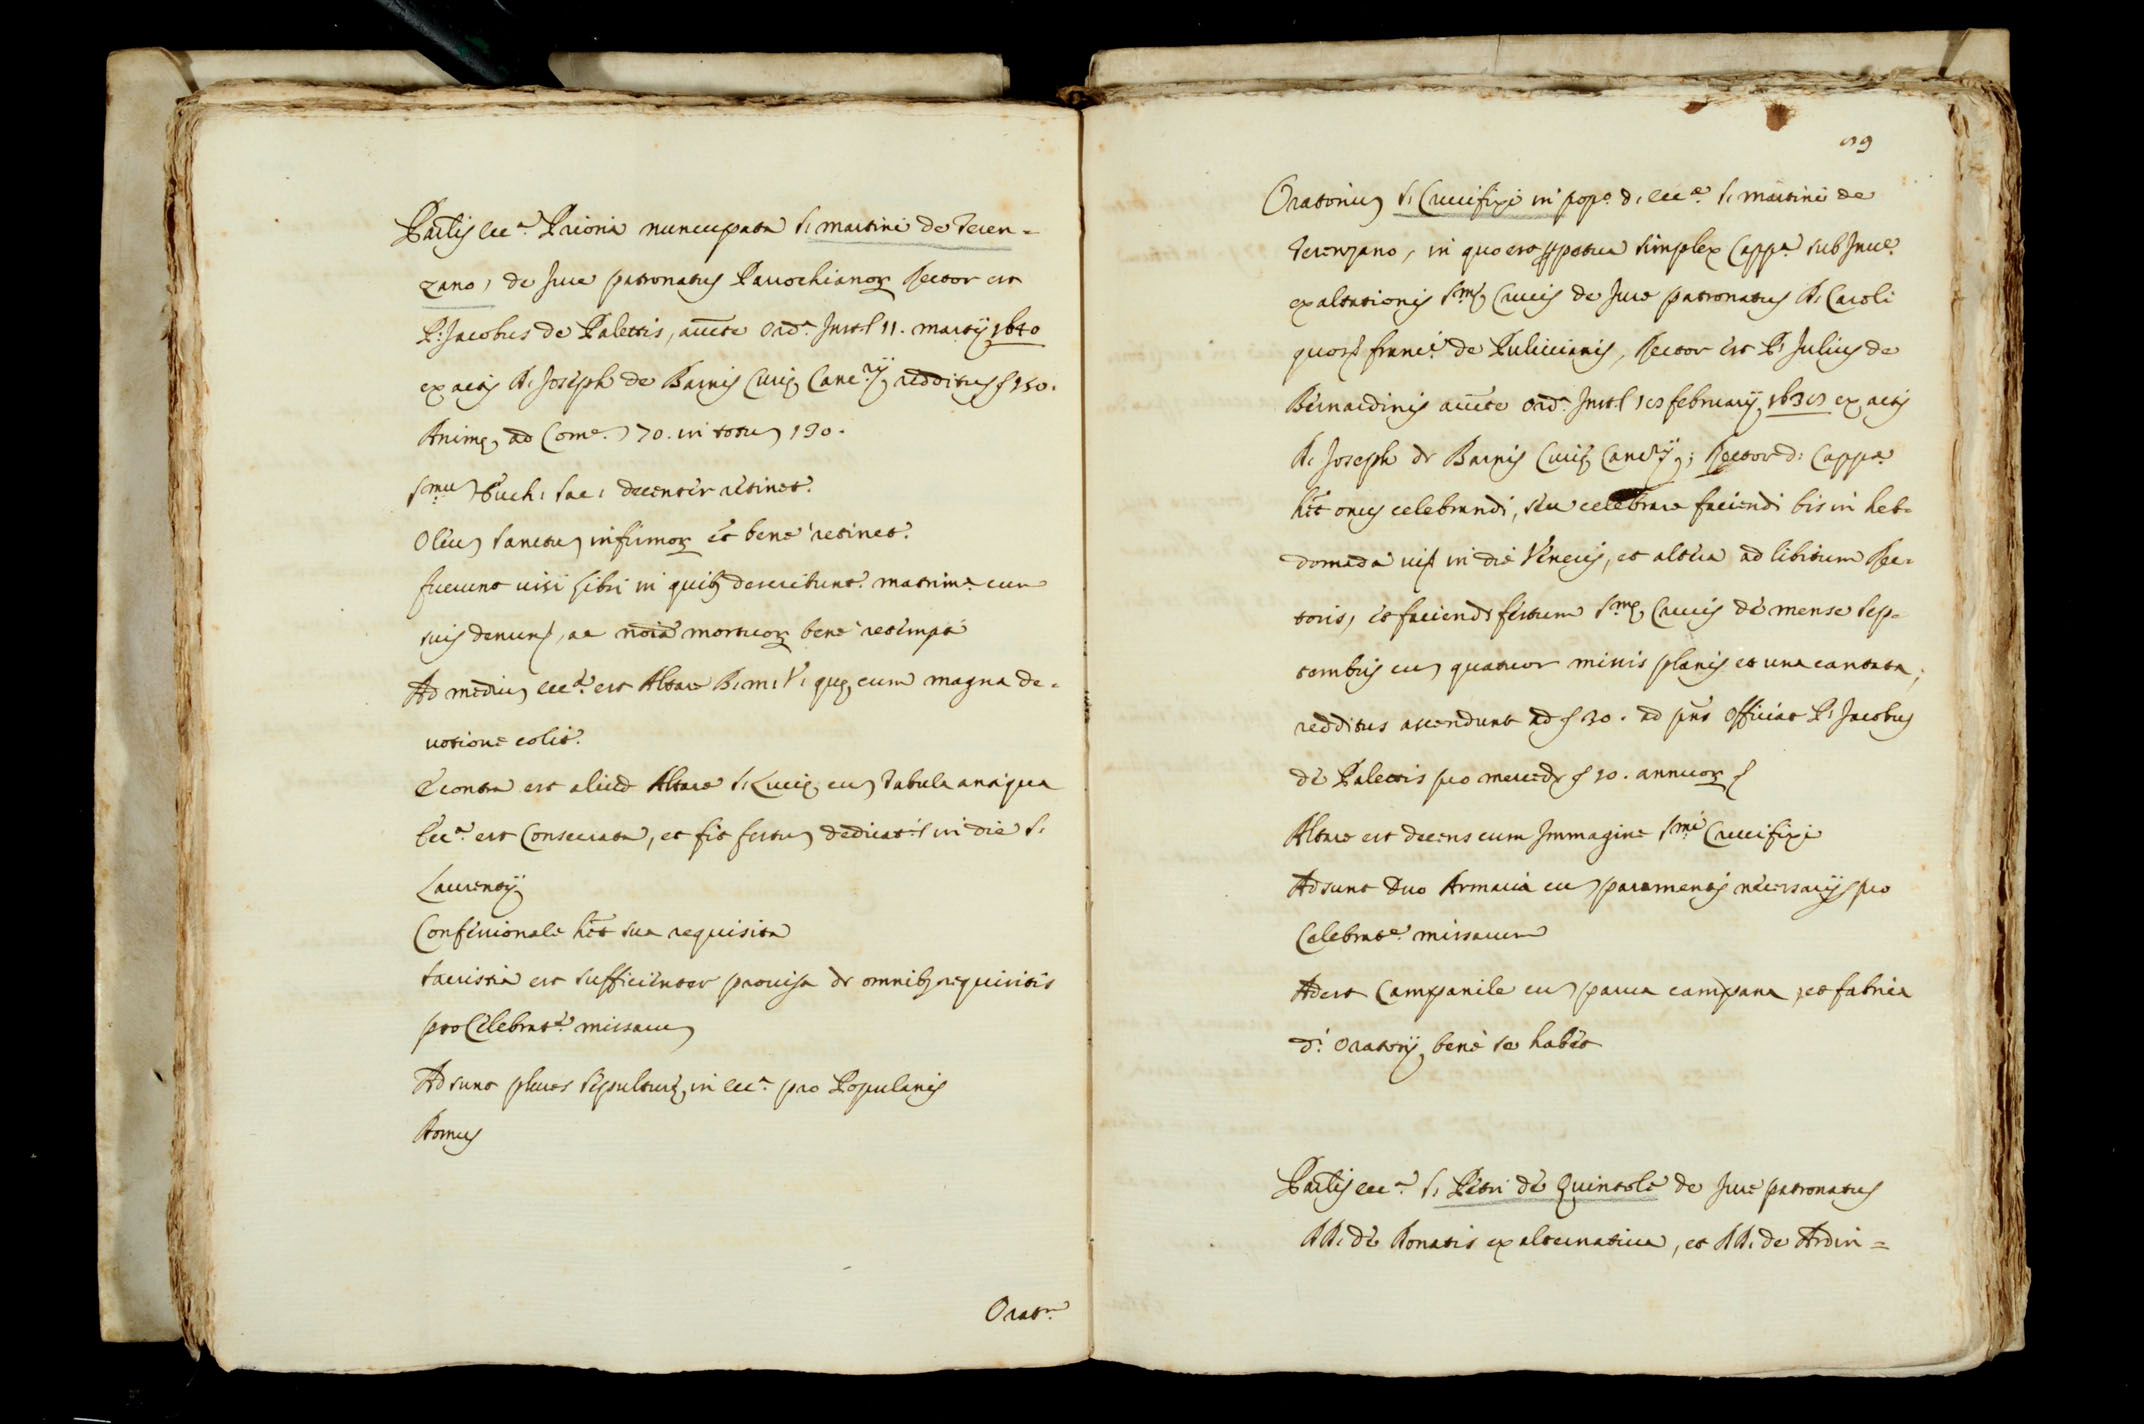 Par.lis ecc.a Prioria nuncupata S. Martini de Teren=
zano, de Jure patronatus Parochianor. Rector est
P. Jacobus de Palettis, auct.e ord.a Inst.s 11. martij 1640
ex actis R. Joseph de Barnis Curię Canc.rij, redditus ſ 150.
Animę ad Com.e 70. in totu 130.
S.mu Euch. Sac. decenter retinet.
Oleu Sanctu infirmor. et bene retinet.
fuerunt visi libri in quib. describunt. matrim.a cum
suis denun.s, ac noia mortuor. bene retempta
Ad mediu ecc.ę est Altare B. M. V. quę cum magna de=
uotione colit.
Econtra est aliud Altare S. Lucię cu Tabula antiqua
Ecc.a est Consecrata, et fit festu dedicat.is in die S.
Laurentij
Confessionale het sua requisita
Sacristia est sufficienter prouisa de omnib. requisitis
pro Celebrat.e missaru
Adsunt plures sepulturę in ecc.a pro Popularis
Domus
Orat.m
Oratoriu S. Crucifixi in pop.o d. ecc.ę S. Martini de
Terenzano, in quo est perpetua simplex Capp.a sub Inuc.e
exaltationis S.mę Crucis de Jure patronatus D. Caroli
quond. franc.i de Puliccianis, Rector est P. Julius de
Bernardinis auct.e ord.a Inst.s februarij ex actis
R. Joseph de Barnis Curię Canc.rij; Rector d. Capp.ę
het onus celebrandi, seu celebrare faciendi bis in heb=
domada uis.t in die Veneris, et altera ad libitum Rec=
toris, et faciend. festum S.mę Crucis de mense Sep=
tembris cu quatuor missis planis et una cantata;
redditus ascendunt ad ſ 30. ad pns officiat P. Jacobus
de Palettis pro mercede ſ 10. annuor. ſ
Altare est decens cum Immagine S.mi Crucifixi
Adsunt Duo Armaria cu paramentis necessarijs pro
Celebrat.e missarum
Adest Campanile cu parua campana, et fabrica
d.i oratorij bene se habet
Par.lis ecc.a S. Petri de Quintole de Jure patronatus
DD. de Donatis ex alternatiua, et DD. de Ardin=